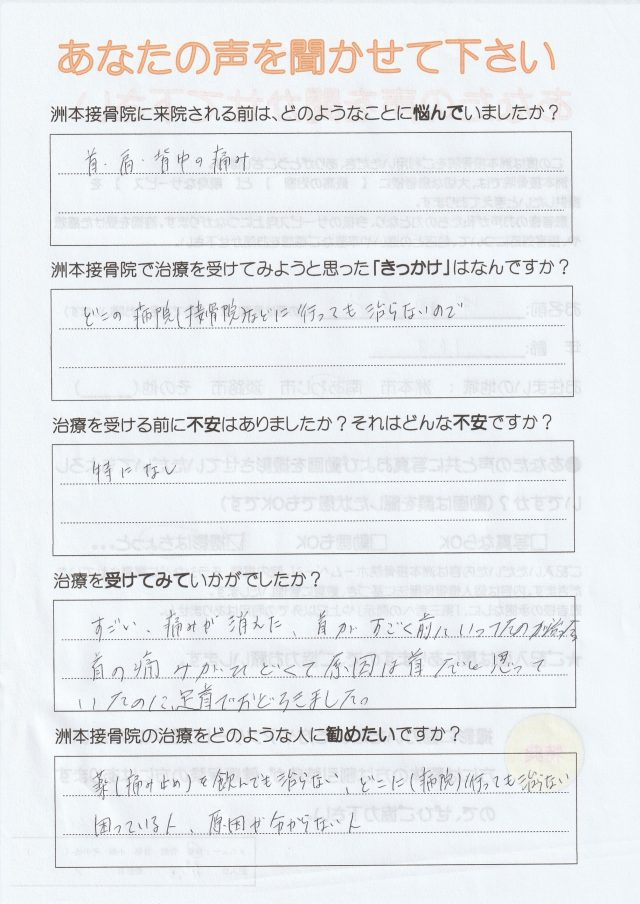 あなたの声を聞かせて下さい
洲本接骨院に来院される前は、どのようなことに悩んでいましたか？
首・肩・背中の痛み
洲本接骨院で治療を受けてみようと思った「きっかけ」はなんですか？
どこの病院、接骨院などに行っても治らないので
治療を受ける前に不安はありましたか？それはどんな不安ですか？
特になし
治療を受けてみていかがでしたか？
すごい、痛みが消えた 首がすごく前にいってたのが
首の痛みがひどくて原因は首だと思って
いたのに足首でおどろきました。
洲本接骨院の治療をどのような人に勧めたいですか？
薬(痛み止め)を飲んでも治らない、どこに(病院)行っても治らない
困っている人、原因が分からない人